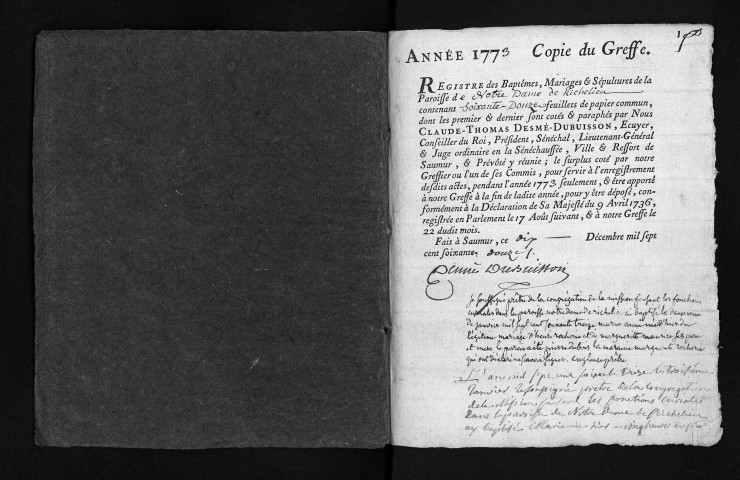 ANNÉE 1773 Copie du Greffe.
REGISTRE des Baptêmes, Mariages & Sépultures de la
Paroisse de Notre Dame de Richelieu
contenant Soixante-Douze feuillets de papier commun,
dont les premier & dernier sont cotés & paraphés par Nous
CLAUDE-THOMAS DESMÉ-DUBUISSON, Ecuyer,
Conseiller du Roi, Président, Sénéchal, Lieutenant-Général
& Juge ordinaire en la Sénéchaussée, Ville & Ressort de
Saumur, & Prévôté y réunie; le surplus coté par notre
Greffier ou l'un de ses Commis, pour servir à l'enregistrement
desdits actes, pendant l'année 1773 seulement, & être apporté
à notre Greffe à la fin de ladite année, pour y être déposé, con-
formément à la Déclaration de Sa Majesté du 9 Avril 1736,
registrée en Parlement le 17 Août suivant, & à notre Greffe le
22 dudit mois.
Fait à Saumur, ce dix Décembre mil sept
cent soixante douze
Desmé Dubuisson
je soussigné prêtre de la congrégation de la mission faisant les fonctions
curiales dans la paroisse notre dame de richelieu ai baptisé le deuxieme
de janvier mil sept cent soixante treize marie anne née du
légitime mariage d'henri rochorie et de marguerite
et mere le parain dubois la maraine marguerite rochorie
qui ont déclaré ne savoir signer
L'an mil sept cent soixante treize le troisième
Janvier je soussigné prêtre de la congrégation
de la mission faisant les fonctions curiales
Dans la paroisse de Notre Dame de Richelieu
ay baptisé